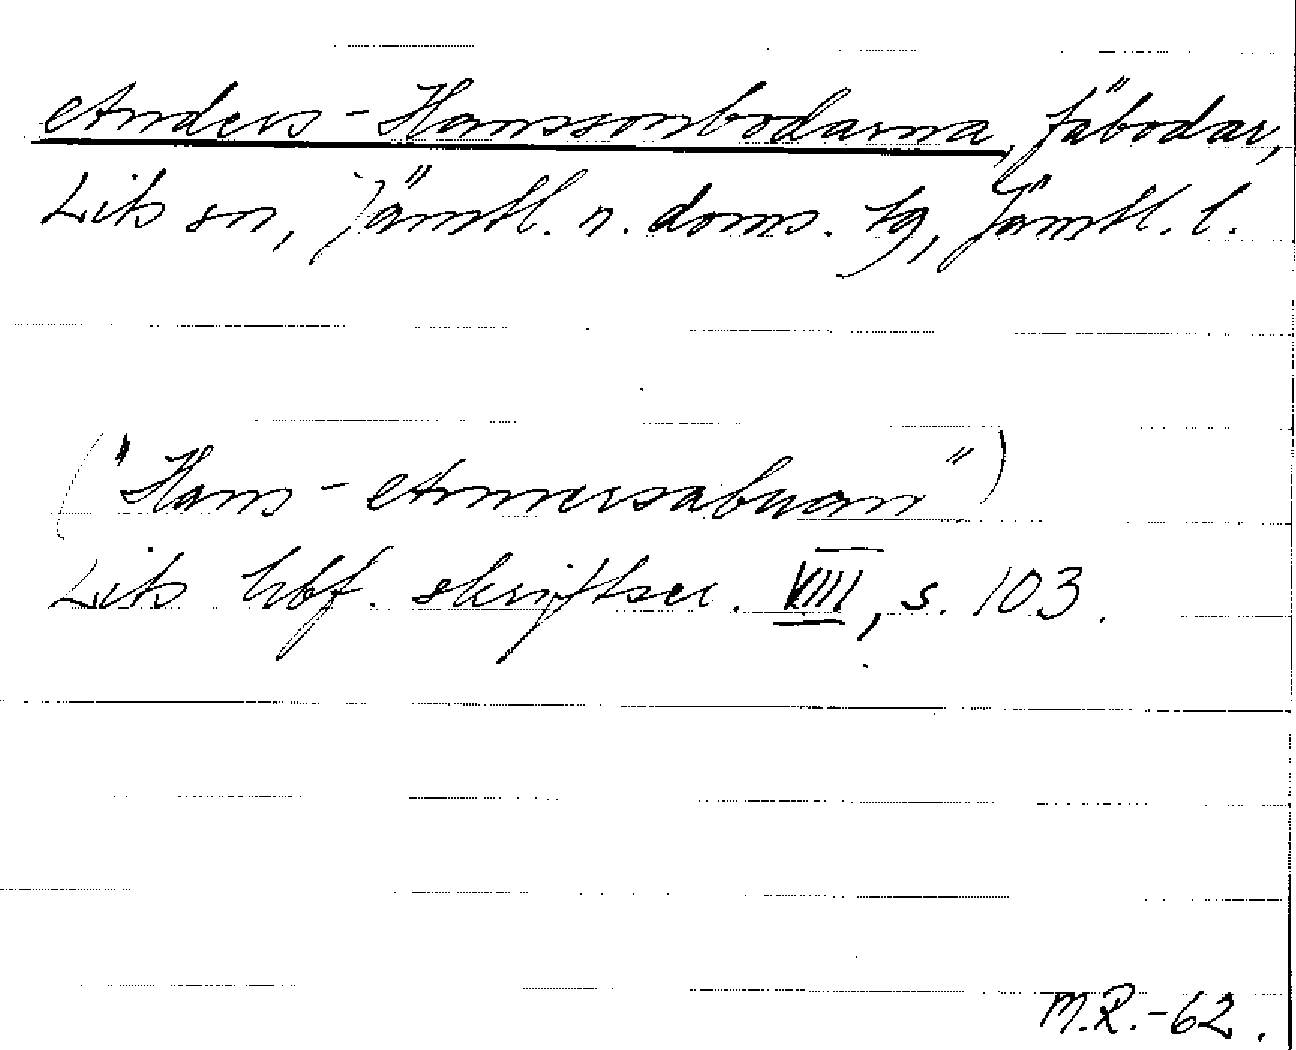 Anders-Hanssonbodarna, fäbodar,
Lits sn, Jämtl. n. doms. tg, Jämtl. l.
("Hans-Annersabuan")
Lits hbf. skriftser. VIII, s. 103.
M.R.-62.